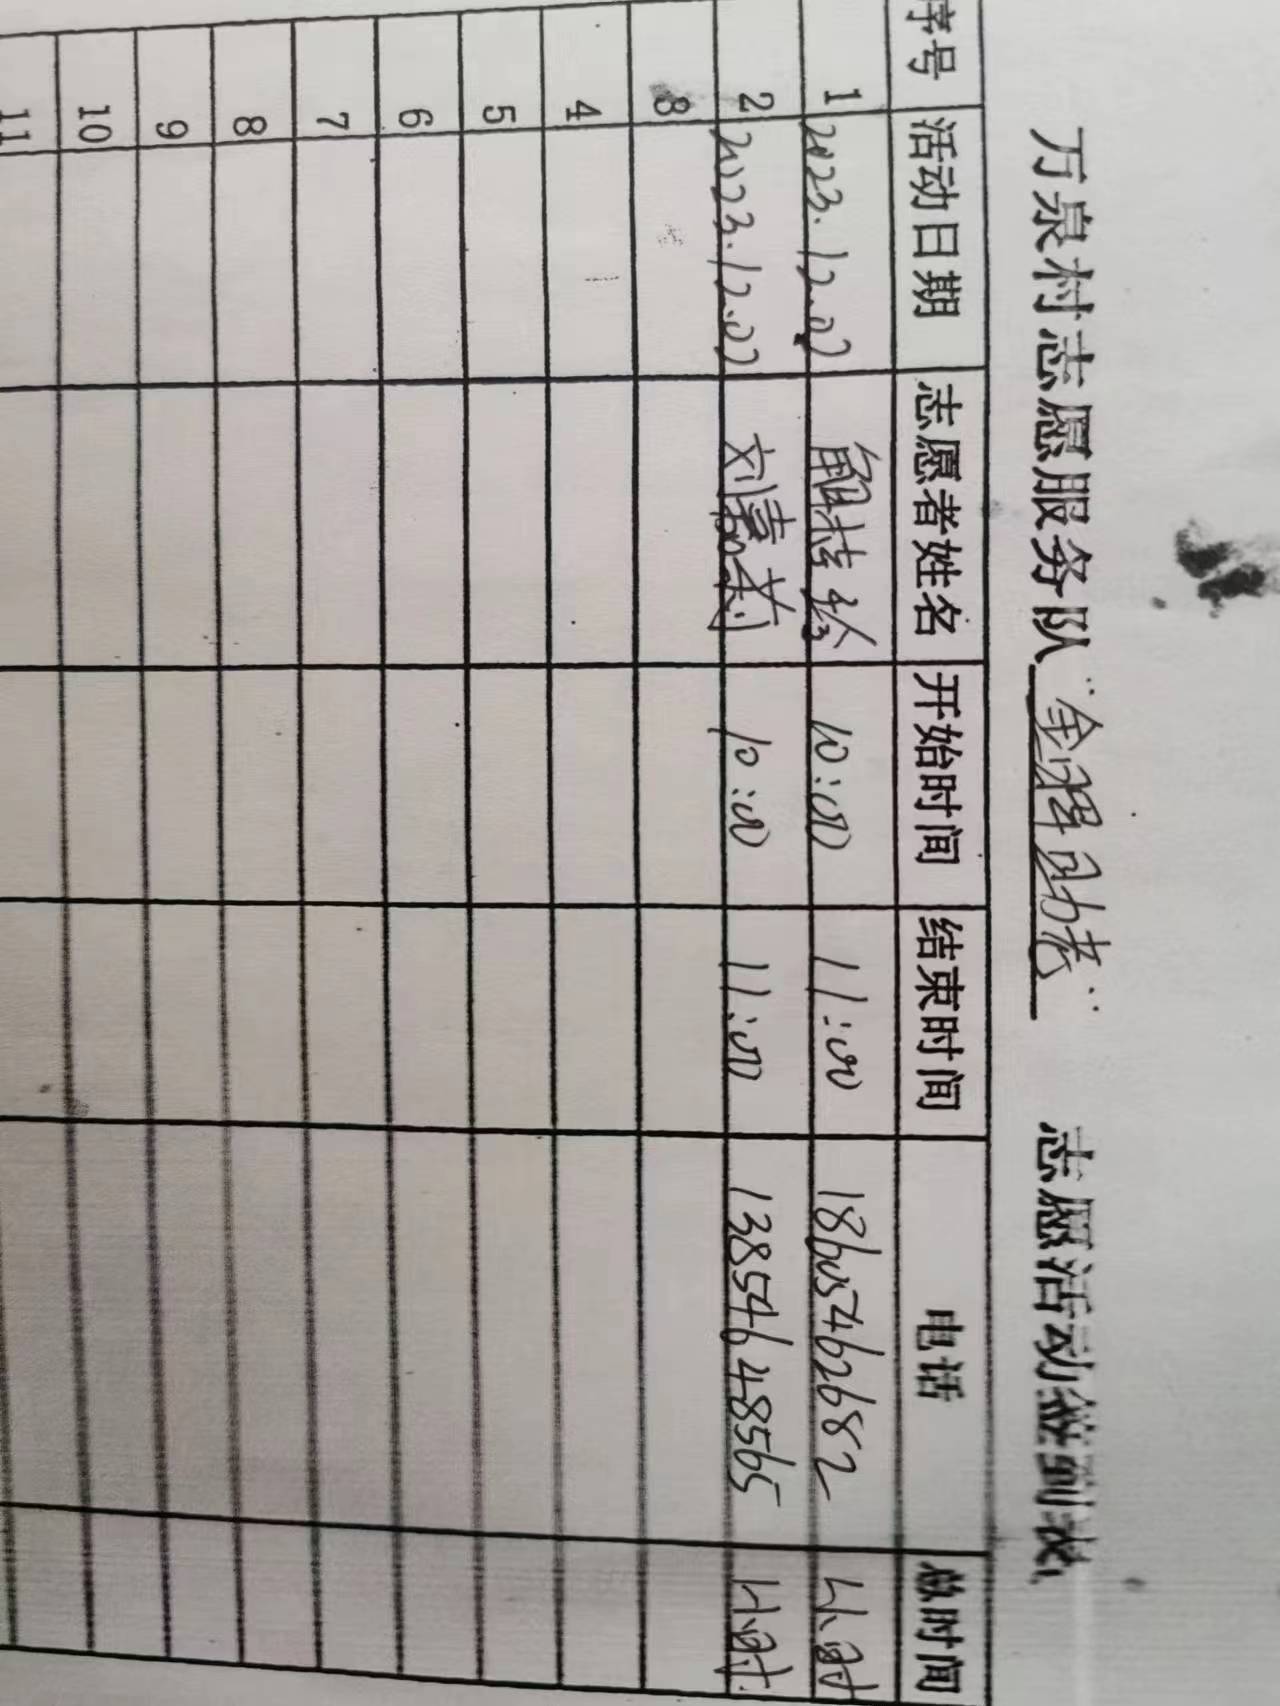 万泉村志愿服务队“金辉助老” 志愿活动签到表
序号 活动日期 志愿者姓名 开始时间 结束时间 电话 总时间
1 2023.12.07 解 10:00 11:00 18605462682 1小时
2 2023.12.07 刘嘉莉 10:00 11:00 13854648565 1小时
3
4
5
6
7
8
9
10
11